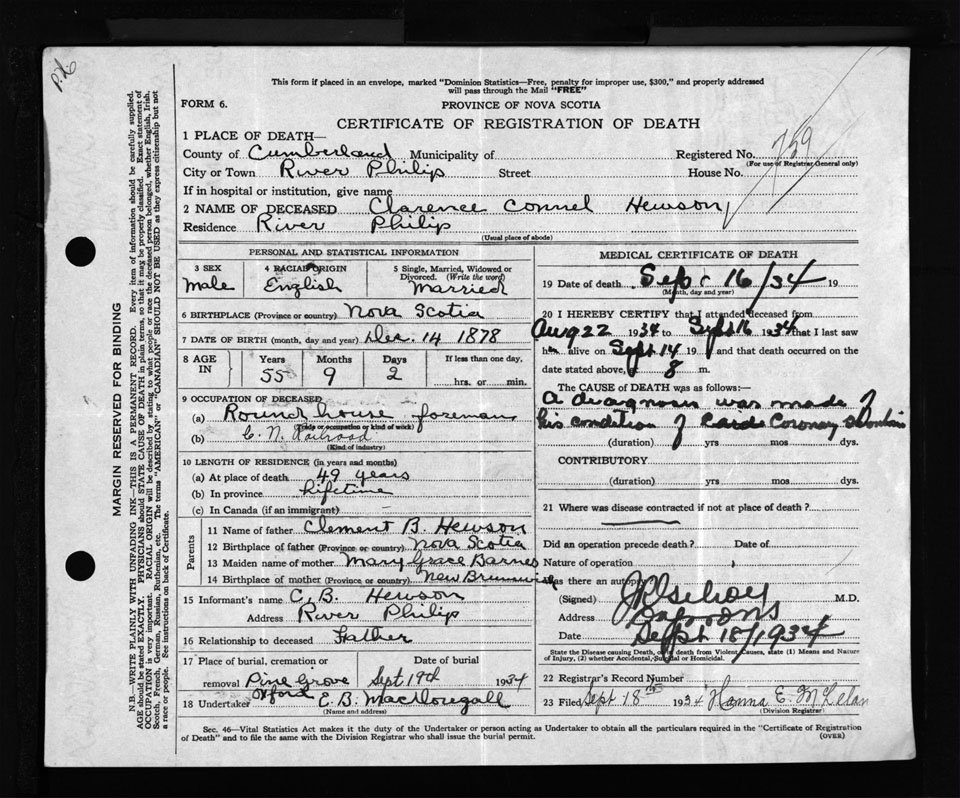 P.X.
This form if placed in an envelope, marked "Dominion Statistics—Free, penalty for improper use, $300," and properly addressed
will pass through the Mail "FREE"
FORM 6.
PROVINCE OF NOVA SCOTIA
CERTIFICATE OF REGISTRATION OF DEATH
759
1 PLACE OF DEATH—
County of Cumberland Municipality of Registered No.
(For use of Registrar General only)
City or Town River Philip Street House No.
If in hospital or institution, give name
2 NAME OF DECEASED Clarence Connel Hewson
Residence River Philip
(Usual place of abode)
PERSONAL AND STATISTICAL INFORMATION
3 SEX 4 RACIAL ORIGIN 5 Single, Married, Widowed or
Divorced. (Write the word)
Male English Married
6 BIRTHPLACE (Province or country) Nova Scotia
7 DATE OF BIRTH (month, day and year) Dec. 14 1878
8 AGE IN Years Months Days If less than one day,
55 9 2 hrs. or min.
9 OCCUPATION OF DECEASED
(a) Round house foreman
(Trade or occupation or kind of work)
(b) C. N. Railroad
(Kind of industry)
10 LENGTH OF RESIDENCE (in years and months)
(a) At place of death 49 years
(b) In province Lifetime
(c) In Canada (if an immigrant) -
Parents
11 Name of father Clement B. Hewson
12 Birthplace of father (Province or country) Nova Scotia
13 Maiden name of mother Mary Grace Barnes
14 Birthplace of mother (Province or country) New Brunswick
15 Informant's name C. B. Hewson
Address River Philip
16 Relationship to deceased Father
17 Place of burial, cremation or Date of burial
removal Pine Grove Sept 19th 1934
Oxford
18 Undertaker E. B. MacDougall
(Name and address)
MEDICAL CERTIFICATE OF DEATH
19 Date of death Sep - 16/34 19
(Month, day and year)
20 I HEREBY CERTIFY that I attended deceased from
Aug 22 1934 to Sept 16 1934 that I last saw
him alive on Sept 14 19 and that death occurred on the
date stated above, at 8 m.
The CAUSE OF DEATH was as follows:—
A diagnosis was made of
his condition of Coronary
(duration) yrs mos dys.
CONTRIBUTORY
(duration) yrs mos dys.
21 Where was disease contracted if not at place of death?
Did an operation precede death? Date of
Nature of operation
Was there an autopsy
(Signed) M.D.
Address
Date Sept 18/1934
State the Disease causing Death, or, in death from Violent Causes, state (1) Means and Nature
of Injury, (2) whether Accidental, Suicidal or Homicidal.
22 Registrar's Record Number
23 Filed Sept 18th 1934 Hanna E. McLelan
(Division Registrar)
Sec. 46—Vital Statistics Act makes it the duty of the Undertaker or person acting as Undertaker to obtain all the particulars required in the "Certificate of Registration
of Death" and to file the same with the Division Registrar who shall issue the burial permit.
(OVER)
MARGIN RESERVED FOR BINDING
N.B.—WRITE PLAINLY WITH UNFADING INK—THIS IS A PERMANENT RECORD. Every item of information should be carefully supplied.
AGE should be stated EXACTLY. PHYSICIANS should STATE CAUSE OF DEATH in plain terms, so that it may be properly classified. Exact statement of
OCCUPATION is very important. RACIAL ORIGIN will be described by stating to what people or race the deceased person belonged, whether English, Irish,
Scotch, French, German, Russian, Ruthenian, etc. The terms "AMERICAN" or "CANADIAN" SHOULD NOT BE USED as they express citizenship but not
a race or people. See instructions on back of Certificate.